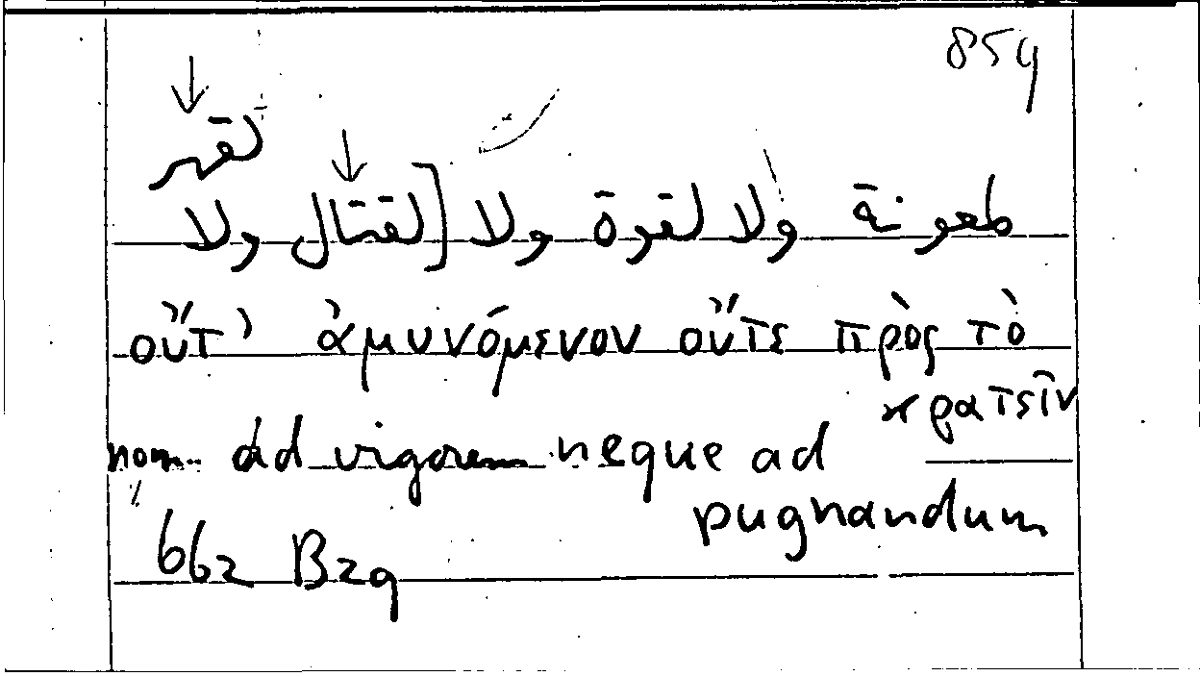 859
لقهر
طعونة ولا لقوة ولا [لقتال ولا
οὔτ' ἀμυνόμενον οὔτε πρὸς τὸ
κρατεῖν
nom. ad vigorem neque ad
pugnandum
662 B29